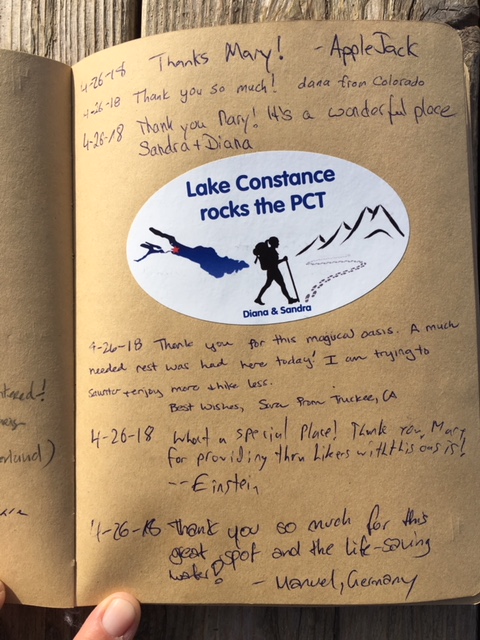 4-26-18 Thanks Mary! - AppleJack
4-26-18 Thank you so much! dana from Colorado
4-26-18 Thank you Mary! It's a wonderful place
Sandra + Diana
Lake Constance
rocks the PCT
Diana & Sandra
4-26-18 Thank you for this magical oasis. A much
needed rest was had here today! I am trying to
saunter + enjoy more & hike less.
Best Wishes, Sara from Truckee, CA
4-26-18 What a special place! Thank you, Mary
for providing thru hikers with this oasis!
-- Einstein
4-26-18 Thank you so much for this
great spot and the life-saving
water!
- Manuel, Germany